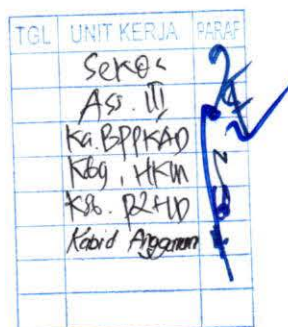 TGL UNIT KERJA PARAF
Sekda
Ass. III
Ka. BPPKAD
Kbg. HKM
Kabid Anggaran